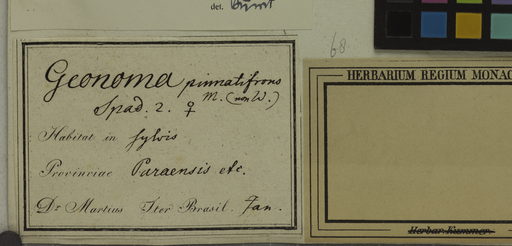 det.
68
Geonoma pinnatifrons
M. (non W.)
Spad. 2. ♀
Habitat in sylvis
Provinciae Paraensis etc.
Dr Martius Iter Brasil. Jan.
HERBARIUM REGIUM MONAC
Herbar. Kummer.